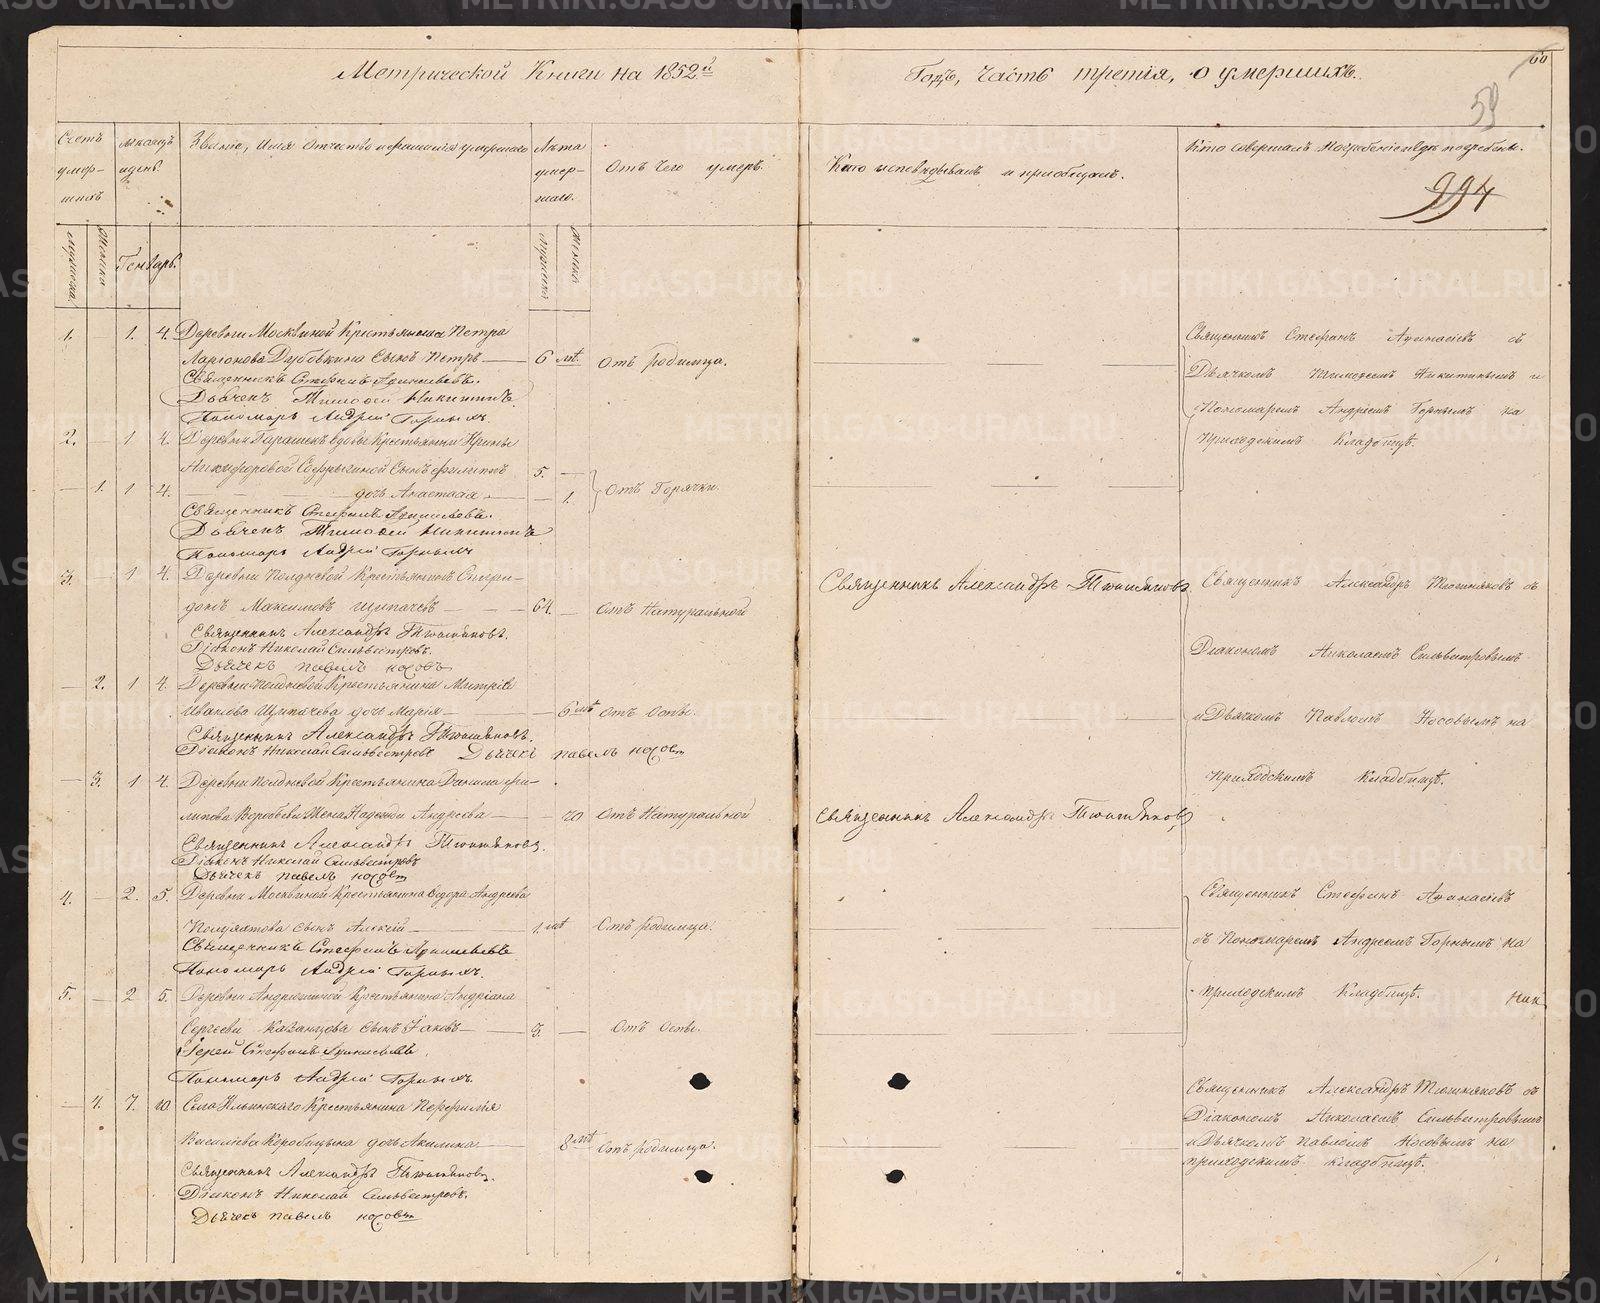 Метрической Книги на 1852й Годъ, часть третія, о умершихъ.
60
59
994
Счетъ умер- шихъ
мѣсяцъ и день.
Званіе, имя отчество и фамилія умершаго
Лѣта умер- шаго.
Отъ чего умеръ.
Кто исповѣдывалъ и пріобщалъ.
Кто совершалъ погребеніе и гдѣ погребены.
мужеска
женска
Генварь.
мужеска
женска
1. — 1. 4. Деревни Москвиной Крестьянина Петра
Ларіонова Дубовкина сынъ Петръ — 6 лѣт. Отъ родимца.
Священникъ Стефанъ Афанасьевъ.
Дьячекъ Тимофей Никитинъ
Пономарь Андрей Горныхъ
Священникъ Стефанъ Афанасіевъ съ
Дьячкомъ Тимофеемъ Никитинымъ и
Пономаремъ Андреемъ Горнымъ на
приходскомъ Кладбищѣ.
2. — 1 4. Деревни вдовы Крестьянки Ирины
Никифоровой сынъ Филиппъ 5. —
— 1. 1 4. — — — дочь Анастасія — — 1. Отъ Горячки.
Священникъ Стефанъ Афанасьевъ.
Дьячекъ Тимофей Никитинъ
Пономарь Андрей Горныхъ
3. — 1 4. Деревни Полдневой Крестьянинъ Спири-
донъ Максимовъ Щипачевъ — — — 64. — Отъ Натуральной
Священникъ Александръ Тюшняковъ.
Діаконъ Николай Сильвестровъ.
Дьячекъ павелъ носовъ
Священникъ Александръ Тюшняковъ
Священникъ Александръ Тюшняковъ съ
Діакономъ Николаемъ Сильвестровымъ
и Дьячкомъ Павломъ Носовымъ на
приходскомъ кладбищѣ.
— 2. 1 4. Деревни Полдневой Крестьянина Митрія
Иванова Щипачева дочь Марія — — 6 лѣт Отъ Оспы.
Священникъ Александръ Тюшняковъ.
Діаконъ Николай Сильвестровъ Дьячекъ павелъ носовъ
— 3. 1 4. Деревни Полдневой Крестьянина Данила Фи-
липова Воробьева Жена Надежда Андреева — — 70 Отъ Натуральной
Священникъ Александръ Тюшняковъ.
Діаконъ Николай Сильвестровъ
Дьячекъ павелъ носовъ
Священникъ Александръ Тюшняковъ
4. — 2. 5. Деревни Москвиной Крестьянина Ѳедора Андреева
сынъ Алексій — 1. лѣт Отъ родимца.
Священникъ Стефанъ Афанасьевъ
Пономарь Андрей Горныхъ.
Священникъ Стефанъ Афанасіевъ
съ Пономаремъ Андреемъ Горнымъ на
приходскомъ Кладбищѣ.
5. — 2 5. Деревни Андрюшиной Крестьянина Андріана
Сергеева Казанцова сынъ Іаковъ — 3. — Отъ Оспы.
Іерей Стефанъ Афанасьевъ.
Пономарь Андрей Горныхъ.
— 4. 7. 10. Села Ильинскаго Крестьянина Перфилія
Васильева Коробицына дочь Акилина — 8 лѣт Отъ родимца.
Священникъ Александръ Тюшняковъ.
Діаконъ Николай Сильвестровъ.
Дьячекъ павелъ носовъ
Священникъ Александръ Тюшняковъ съ
Діакономъ Николаемъ Сильвестровымъ
и Дьячкомъ Павломъ Носовымъ на
приходскомъ кладбищѣ.
METRIKI.GASO-URAL.RU